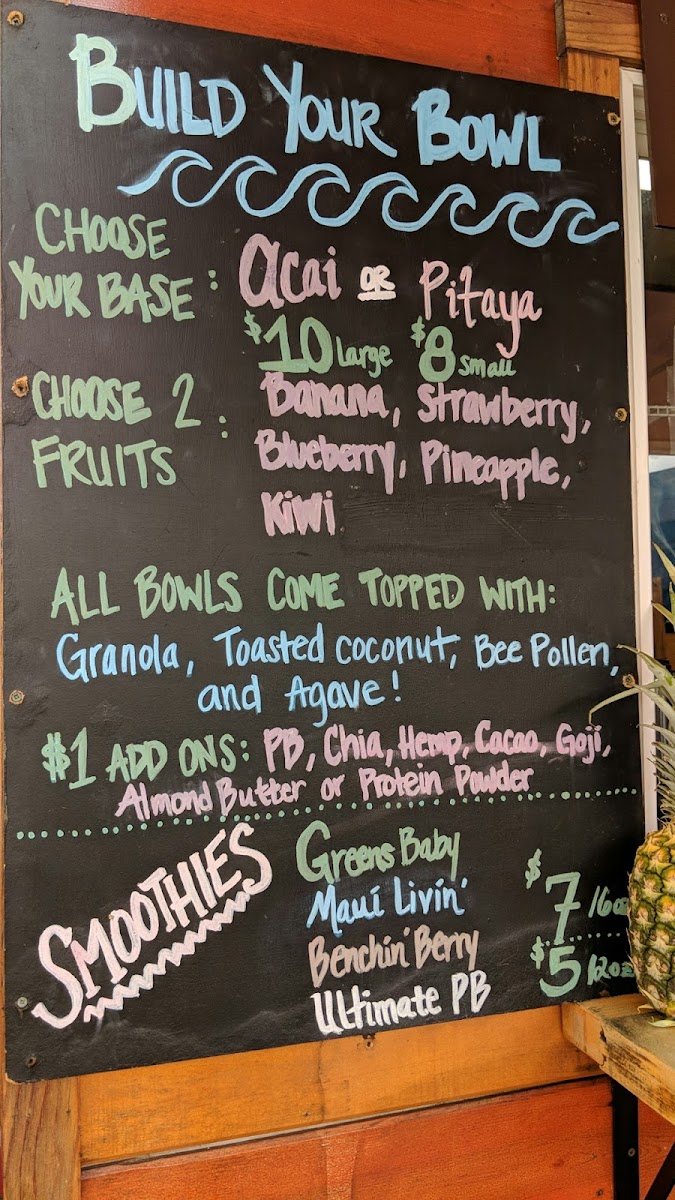 BUILD YOUR BOWL
CHOOSE YOUR BASE: Acai OR Pitaya
$10 Large $8 small
CHOOSE 2 FRUITS: Banana, Strawberry,
Blueberry, Pineapple,
Kiwi
ALL BOWLS COME TOPPED WITH:
Granola, Toasted coconut, Bee Pollen,
and Agave!
$1 ADD ONS: PB, Chia, Hemp, Cacao, Goji,
Almond Butter or Protein Powder
SMOOTHIES
Greens Baby
Maui Livin'
Benchin' Berry
Ultimate PB
$7 16oz
$5 12oz